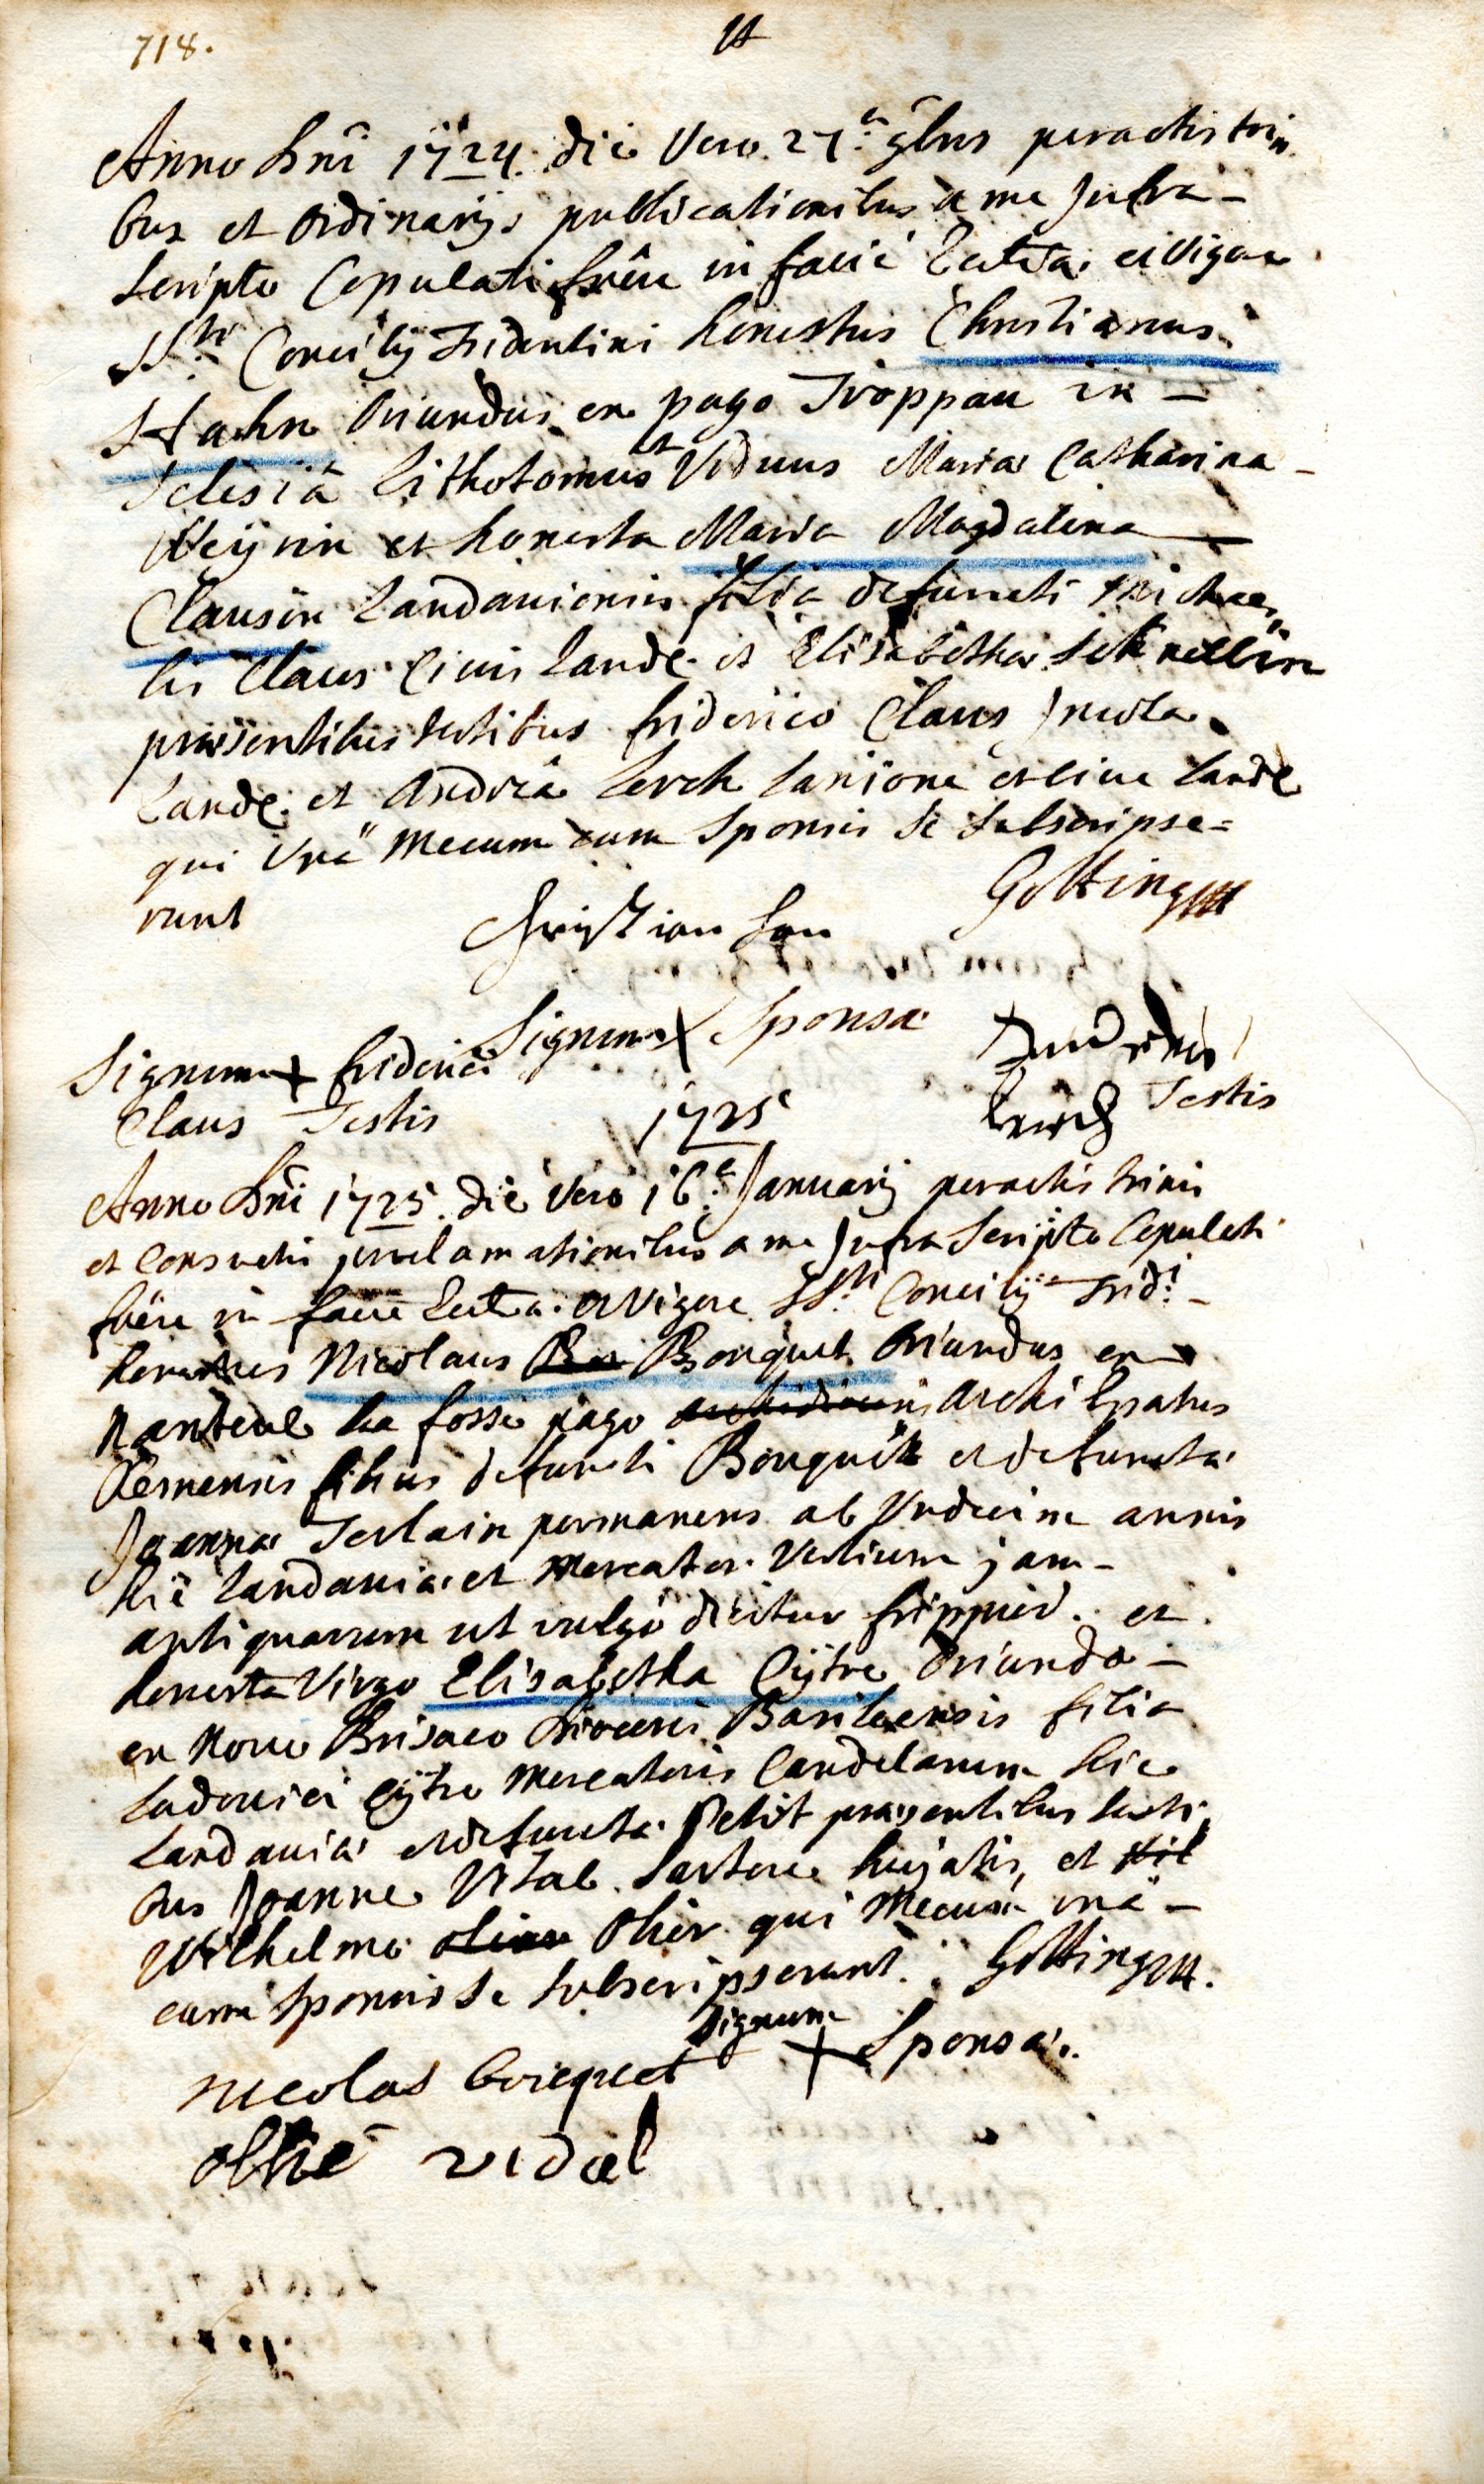 718.
Anno Dni 1724. die Vero. 27.a 9bris peractis trini
bus et Ordinarijs publicationibus a me Infra-
scripto Copulati fuêre in facie Eccl̃iæ ex vigore
SSti Concilij Tridentini honestus Christianus
Hahn Oriundus ex pago Troppau in -
Silesia Lithotomus et Viduus Mariæ Catharinæ -
et honesta Maria Magdalena
Clausin Landaviensis filia defuncti Michae,,
lis Claus Civis Land: et Elisabethæ
præsentibus testibus friderico Claus Incola
Land: et Andrea Lerch Lanione et cive Land:
qui Unâ Mecum cum Sponsis se subscripse=
runt
Gotting
Christian Han
Signum X Sponsæ
Signum + friderici
Claus Testis
Andreas
Lerch Testis
1725
Anno Dni 1725. die Vero 16.a Januarij peractis trinis
et Consuetis proclamationibus a me Infra Scripto Copulati
fuêre in facie Eccl̃iæ ex Vigore SSti Concilij Trid:i -
honestus Nicolaus Bo Bouquet Oriundus ex
Nanteul la fosse pago Archi Epatus
Remensis filius defuncti Bouquet et defunctæ
Joannæ Terlain permanens ab Undecim annis
hic Landaviæ et Mercator Vestium jam -
antiquarum ut vulgo dicitur frippier. et
honesta Virgo Elisabetha Cijtre Oriunda -
ex Novo Brisaco Diœcesis Basileensis filia
Ludovici Cijtre Mercatoris Candelarum hic
Landaviæ et defunctæ Petit præsentibus testi,
bus Joanne Vital Sartore hujatis, et Wil
Wilhelmo olier Olier qui Mecum unâ -
cum Sponsis se subscripserunt. Gotting.
Signum + Sponsæ.
nicolas bouquet
ollié vidal